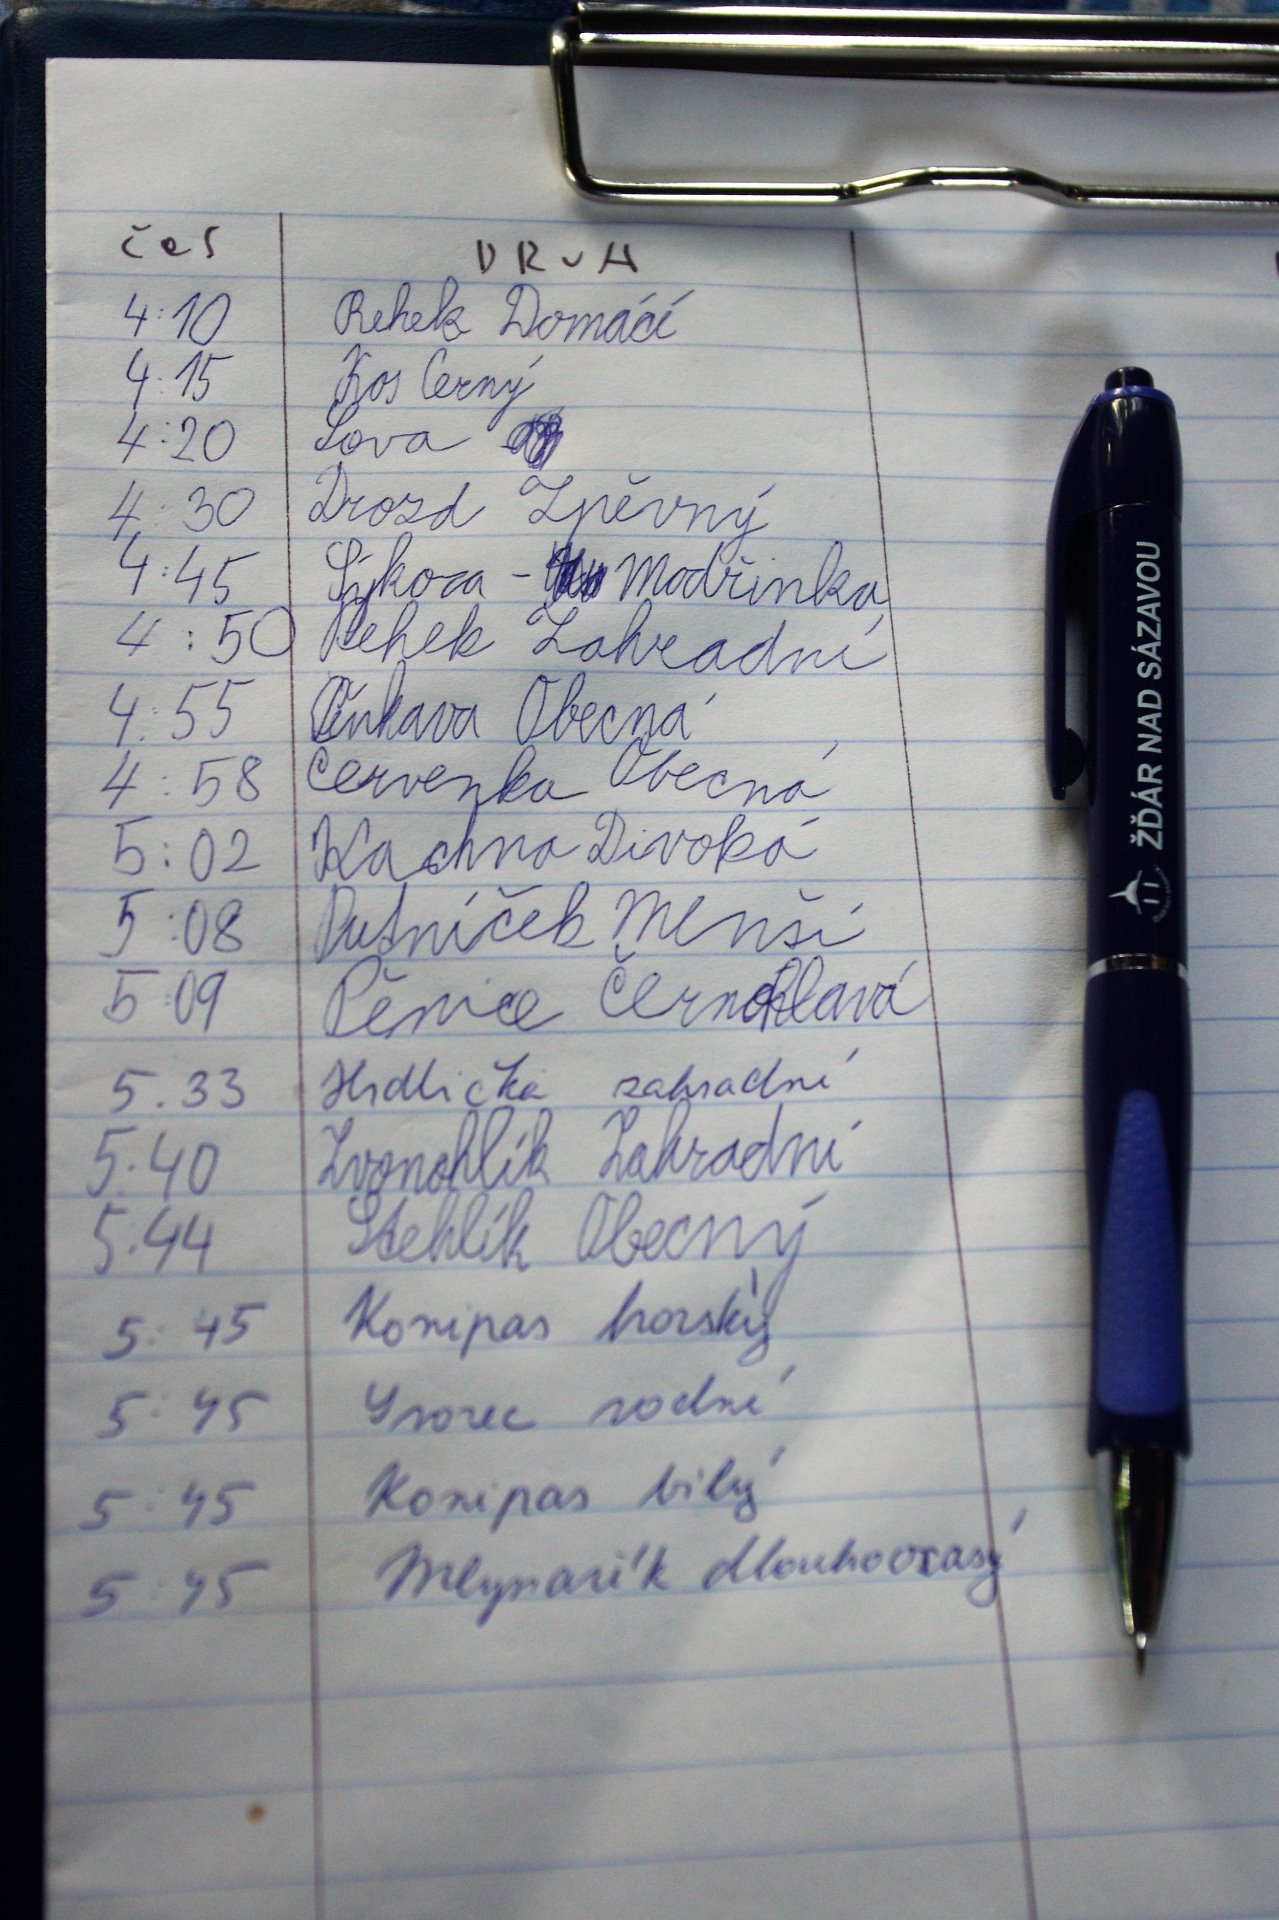 čas DRUH
4:10 Rehek Domácí
4:15 Kos Černý
4:20 Sova
4:30 Drozd Zpěvný
4:45 Sýkora - Modřinka
4:50 Rehek Zahradní
4:55 Pěnkava Obecná
4:58 Červenka Obecná
5:02 Kachna Divoká
5:08 Budníček Menší
5:09 Pěnice Černohlavá
5.33 Hrdlička zahradní
5:40 Zvonohlík Zahradní
5:44 Stehlík Obecný
5:45 Konipas horský
5:45 vodní
5:45 Konipas bílý
5:45 Mlynařík dlouhoocasý
ŽĎÁR NAD SÁZAVOU